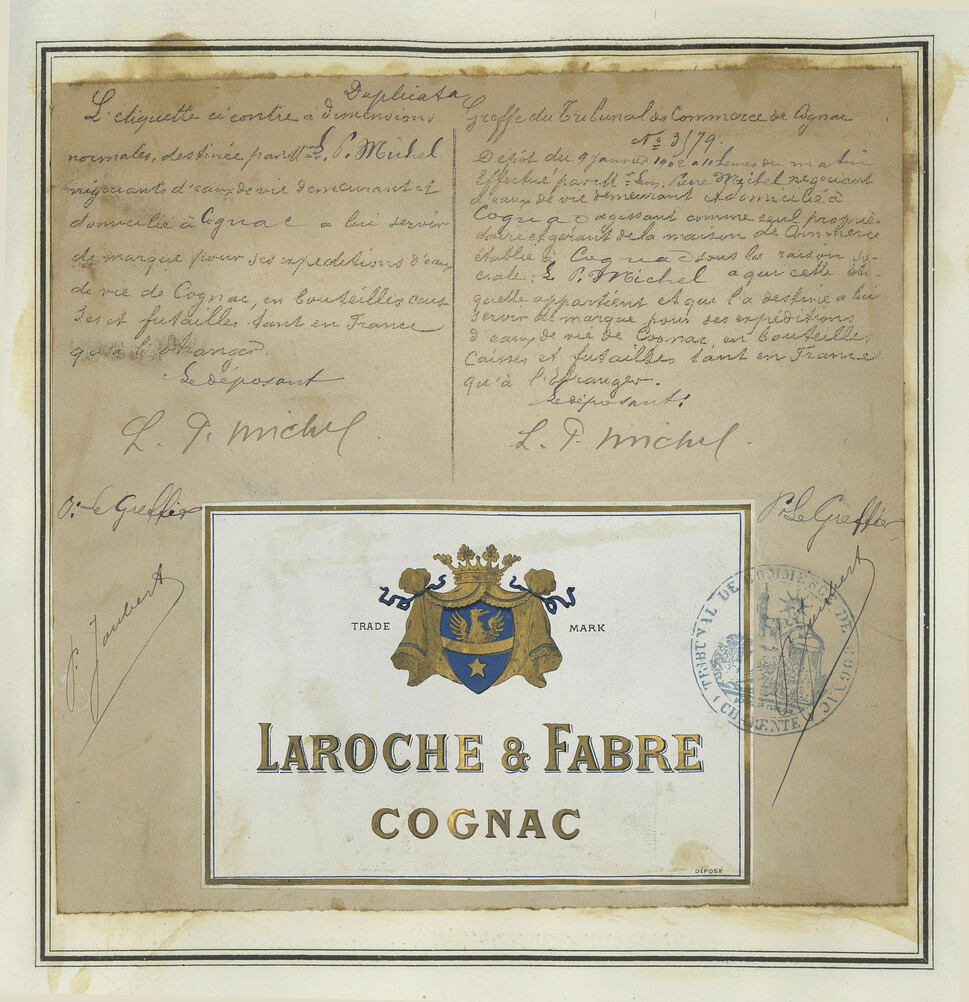 Duplicata
L'étiquette ci contre à dimensions
normales, destinée par Mr L. P. Michel
négociants d'eaux de vie demeurant et
domiculié à Cognac a lui servir
de marque pour ses expéditions d'eaux
de vie de Cognac, en bouteilles cais
ses et futailles tant en France
qu'à l'étranger.
Le déposant
L. P. Michel.
P. Le Greffier
P. Jaubert
Greffe du Tribunal de Commerce de Cognac
No 3179.
Dépot du 9 Janvier 1902 a 10 heures du matin
Effectué par M. Léon Pierre Michel négociant
d'eaux de vie demeurant et domiculié à
Cognac agissant comme seul proprié-
taire et gérant de la maison de Commerce
établie à Cognac sous la raison so-
ciale: L. P. Michel a qui cette éti-
quette appartient et que l'a destine a lui
servir de marque pour ses expéditions
d'eaux de vie de Cognac, en bouteilles
Caisses et futailles tant en France
qu'à l'Etranger.
Le déposant:
L. P. Michel.
P. Le Greffier
P. Jaubert
TRIBUNAL DE COMMERCE DE COGNAC
(CHARENTE)
TRADE MARK
LAROCHE & FABRE
COGNAC
DÉPOSÉ